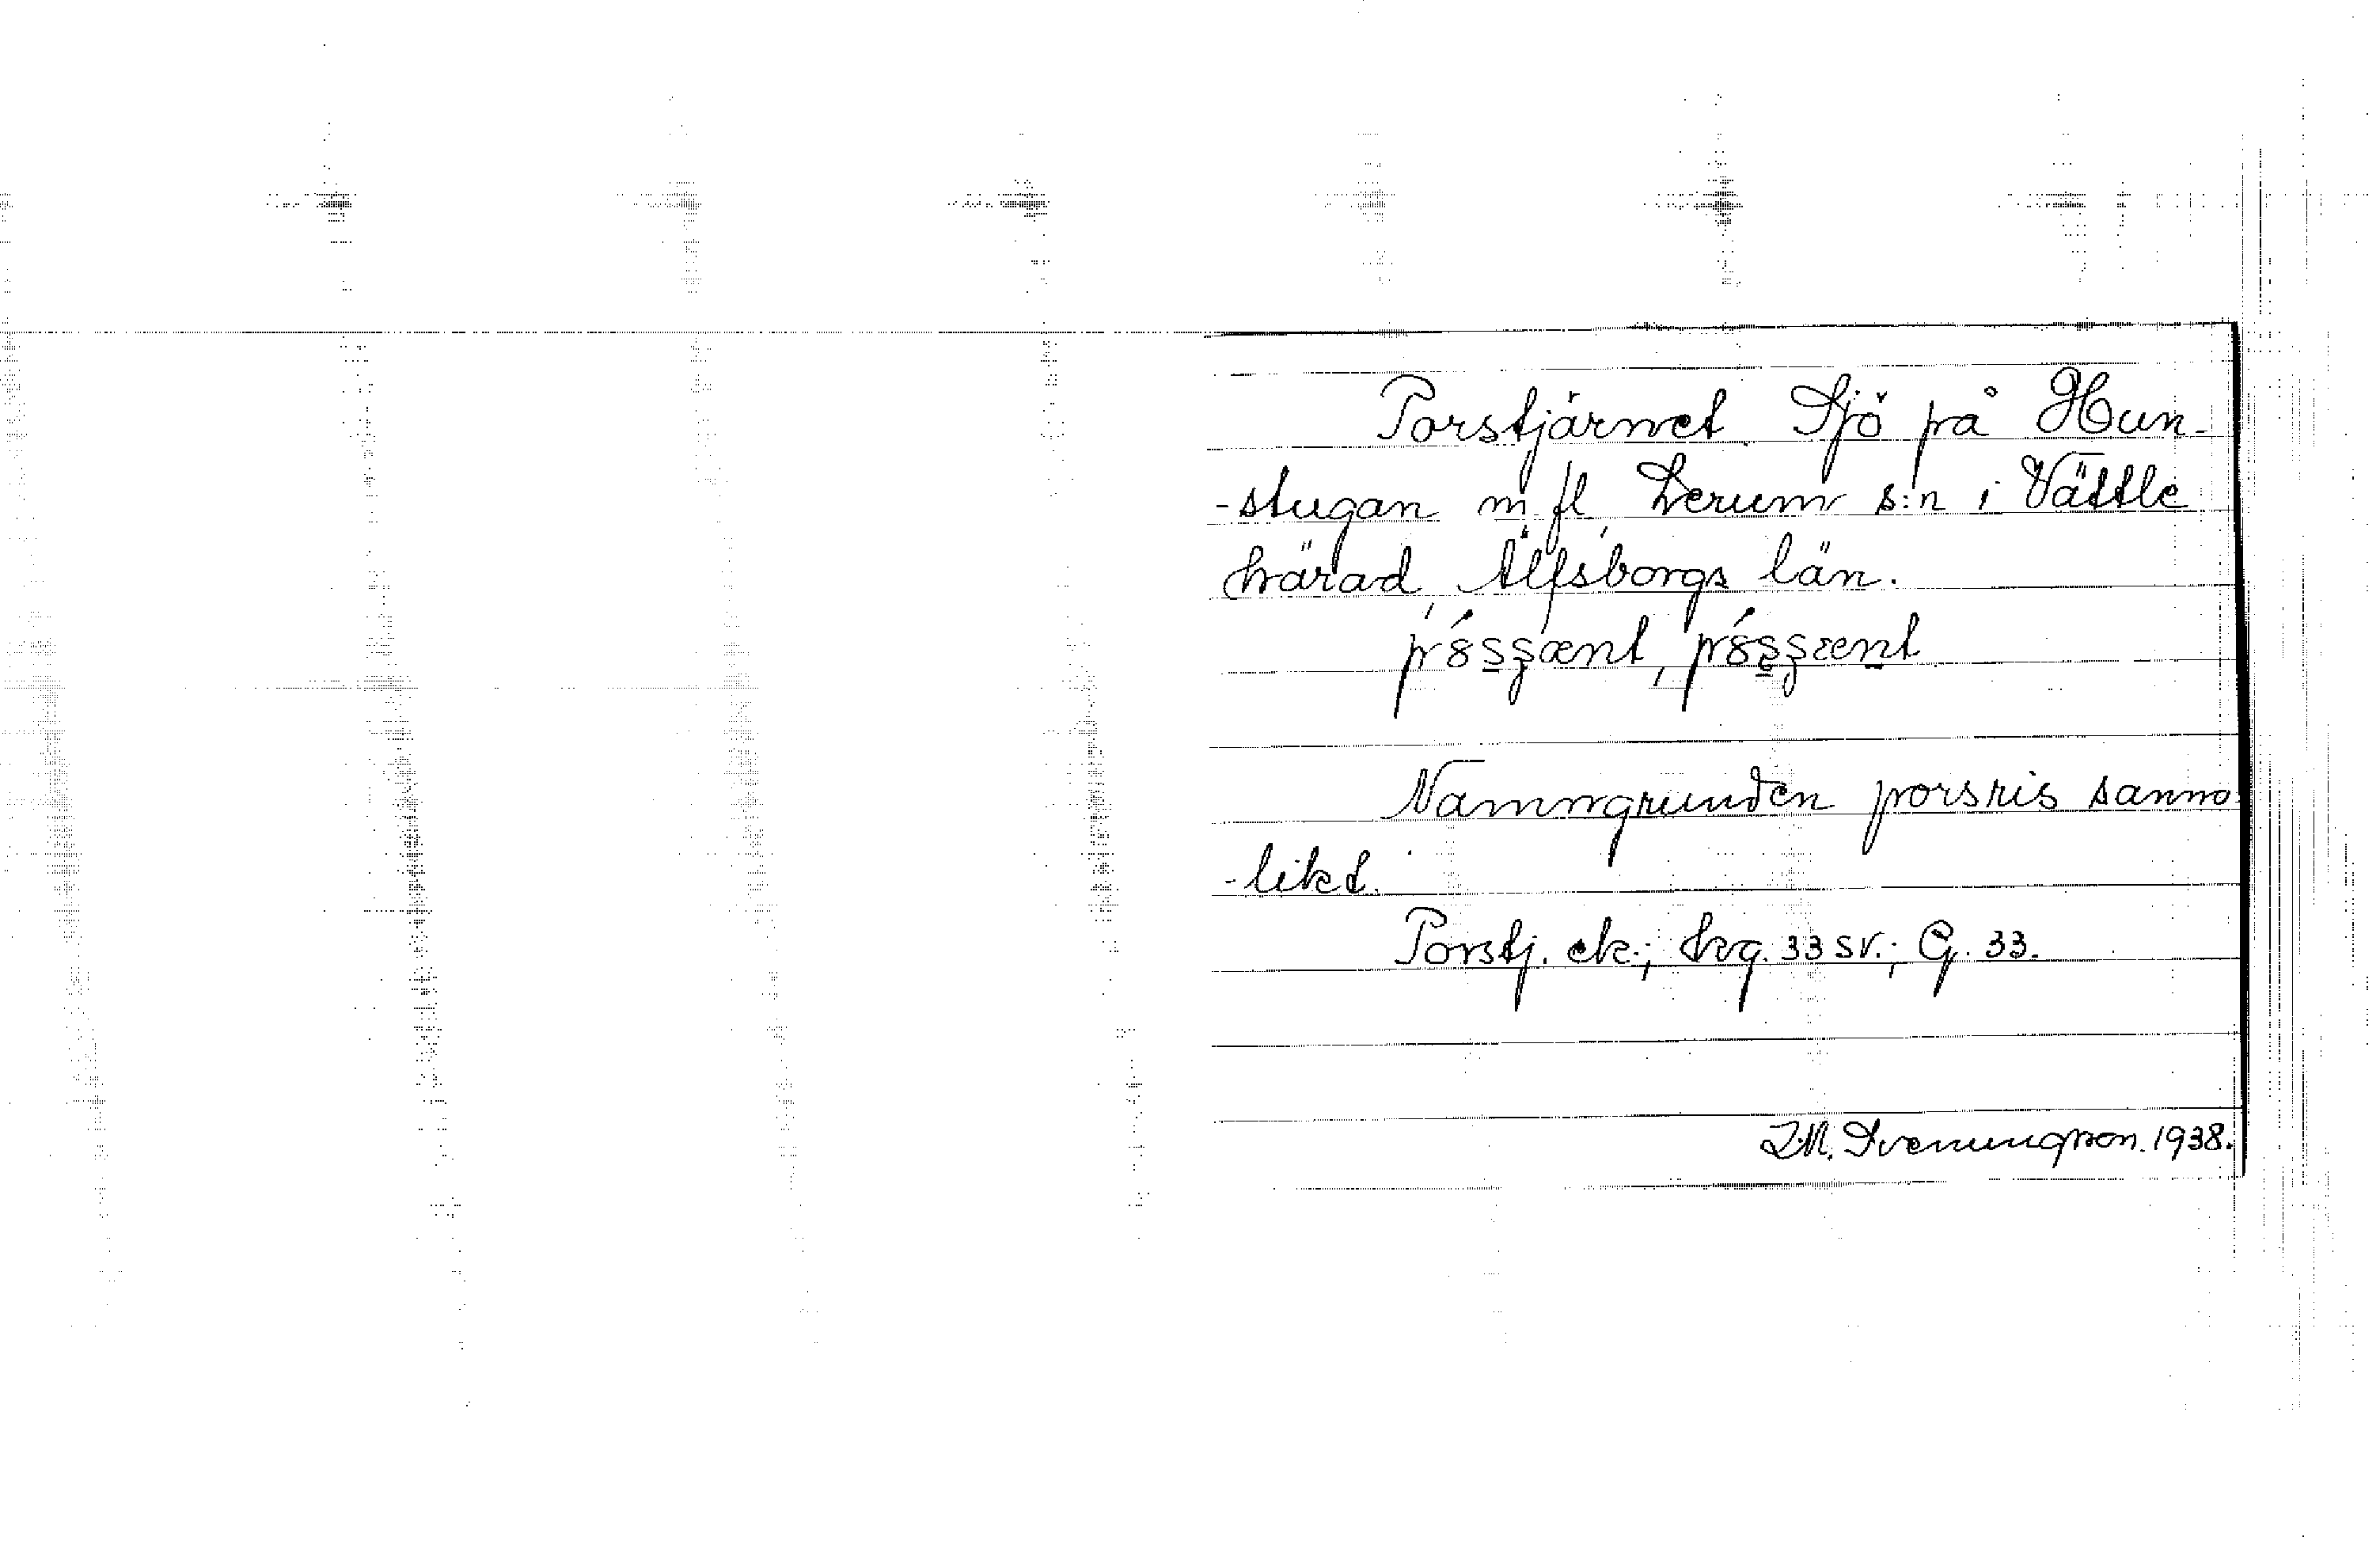 Porstjärnet. Sjö på Hun-
-stugan m. fl., Lerum s:n i Vättle
härad, Älfsborgs län.
Namngrunden porsris sanno-
-likt.
Porstj. ek.; hvg. 33 sv.; G. 33.
I.M. Svenungson. 1938.